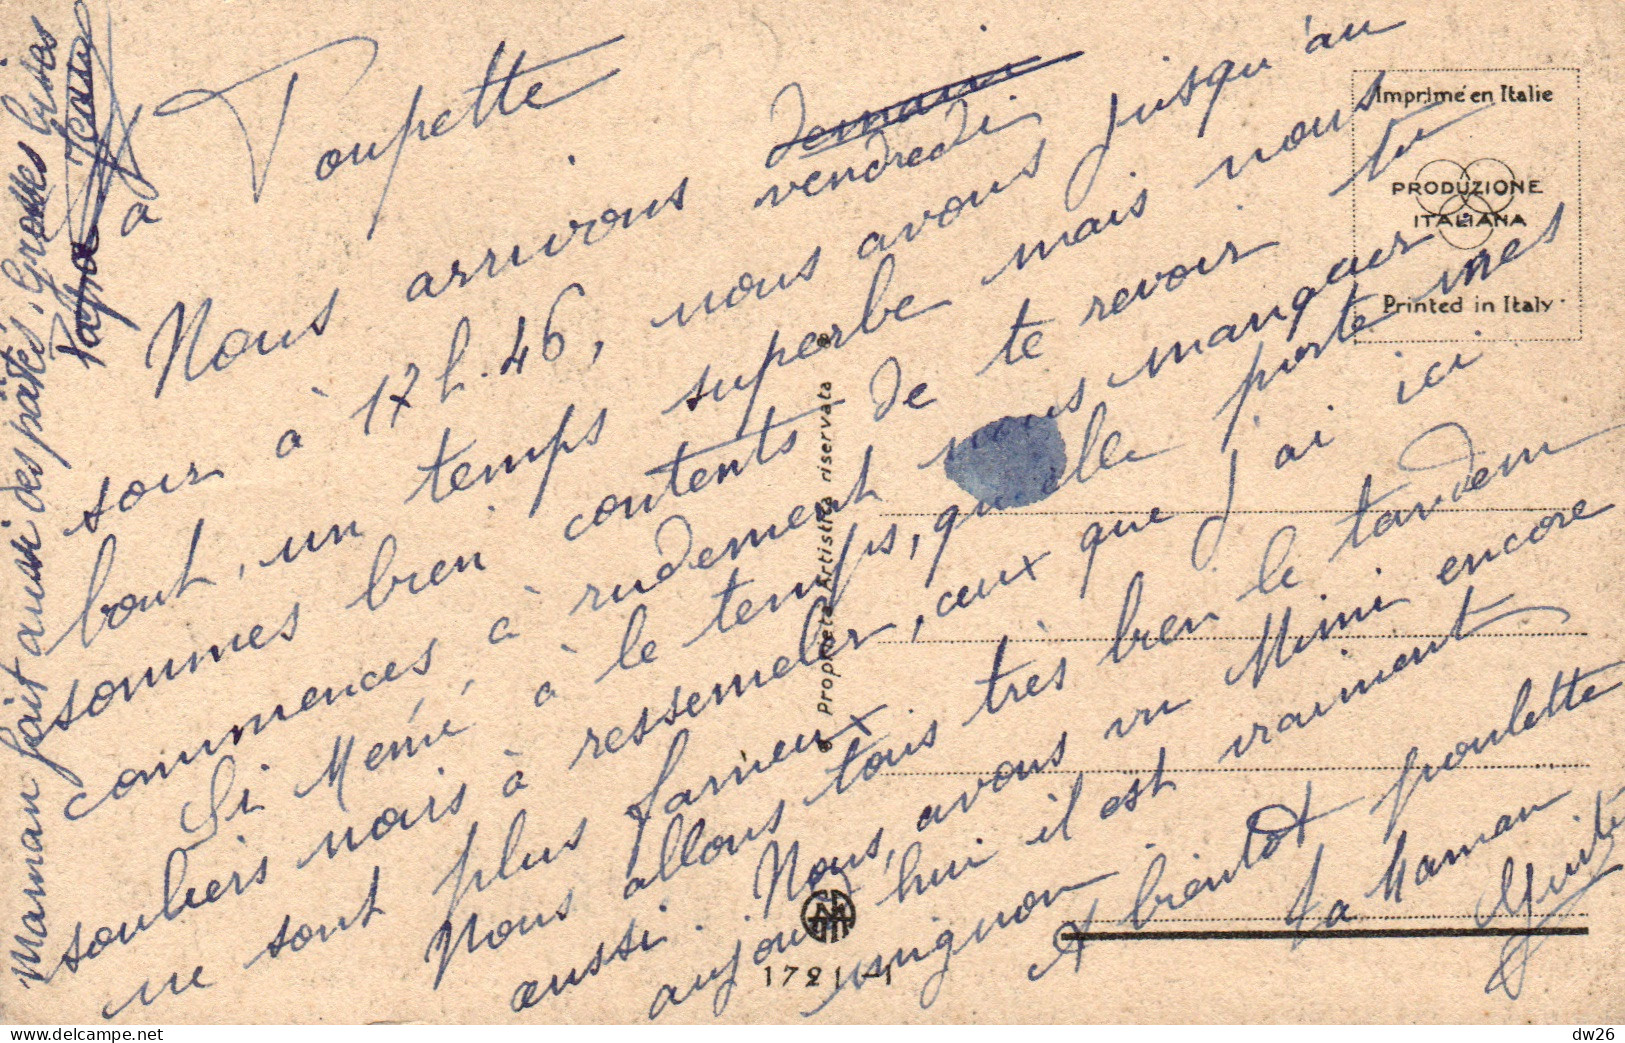 à Toupette
Nous arrivons demain vendredi
soir à 17 h. 46, nous avons jusqu'au
bout, un temps superbe mais nous
sommes bien contents de te revoir tu
commences à rudement nous manquer
Si Mémé, à le temps, qu'elle porte mes
souliers mais à ressemeler, ceux que j'ai ici
ne sont plus fameux.
Nous allons tous très bien le tandem
aussi. Nous, avons vu Mimi encore
aujourd'hui il est vraiment
mignon.
A bientôt poulette
Ta Maman
Maman fait aussi des pâtés, Grosses bises
Papa
Imprimé en Italie
PRODUZIONE
ITALIANA
Printed in Italy
Proprietà Artistica riservata
1721-1
dw26